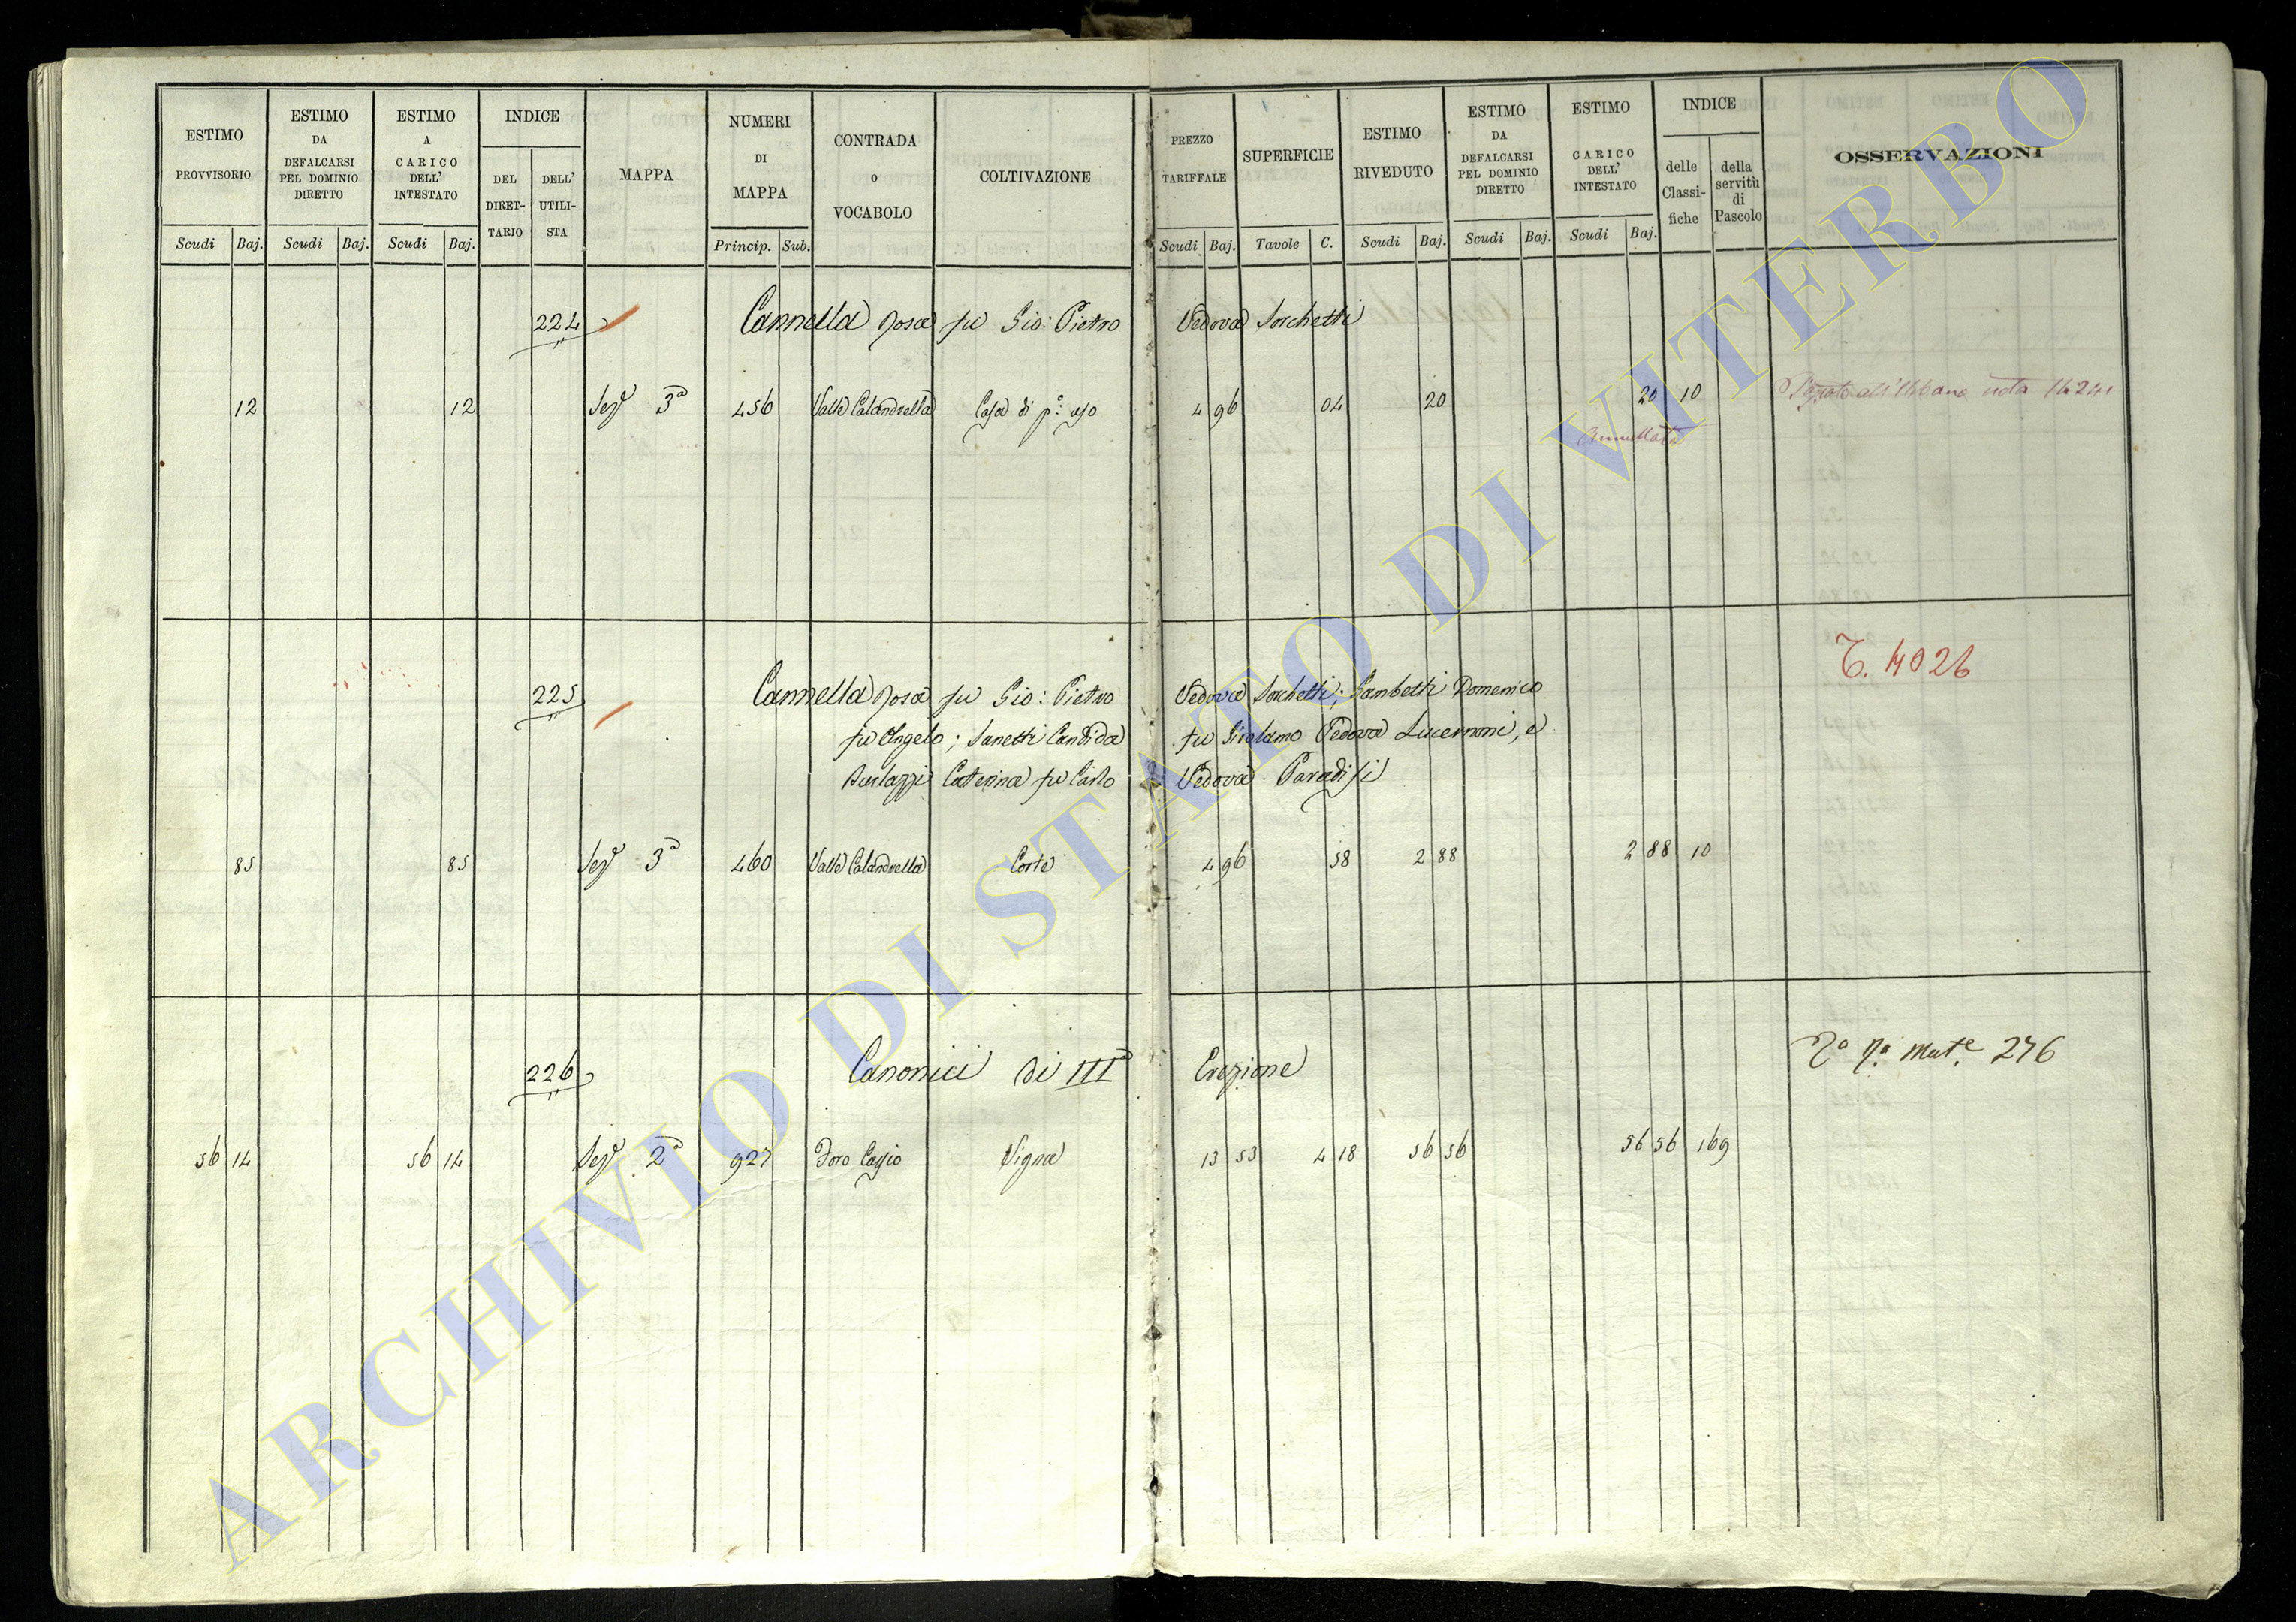 ESTIMO PROVVISORIO
ESTIMO DA DEFALCARSI PEL DOMINIO DIRETTO
ESTIMO A CARICO DELL' INTESTATO
INDICE
DEL DIRET- TARIO
DELL' UTILI- STA
MAPPA
NUMERI DI MAPPA
CONTRADA O VOCABOLO
COLTIVAZIONE
PREZZO TARIFFALE
SUPERFICIE
ESTIMO RIVEDUTO
ESTIMO DA DEFALCARSI PEL DOMINIO DIRETTO
ESTIMO CARICO DELL' INTESTATO
INDICE
delle Classi- fiche
della servitù di Pascolo
OSSERVAZIONI
Scudi Baj. Scudi Baj. Scudi Baj. Princip. Sub. Scudi Baj. Tavole C. Scudi Baj. Scudi Baj. Scudi Baj.
224 Cannella Rosa fu Gio: Pietro Vedova Sorchetti
12 12 Sez.e 3a 456 Valle Calandrella Casa di p.o uso 4 96 04 20 20 10 all'Urbano nota
Annullata
T. 4026
225 Cannella Rosa fu Gio: Pietro Vedova Sorchetti; Gambetti Domenico
fu Angelo; Sanetti Candida fu Girolamo Vedova Lucernoni, e
Caterina fu Carlo Vedova Paradisi
85 85 Sez.e 3a 460 Valle Calandrella Corte 4 96 58 2 88 2 88 10
226 Canonici di IIIa Erezione
276
56 14 56 14 Sez.e 2a 927 Foro Cassio Vigna 13 53 4 18 56 56 56 56 169
ARCHIVIO DI STATO DI VITERBO